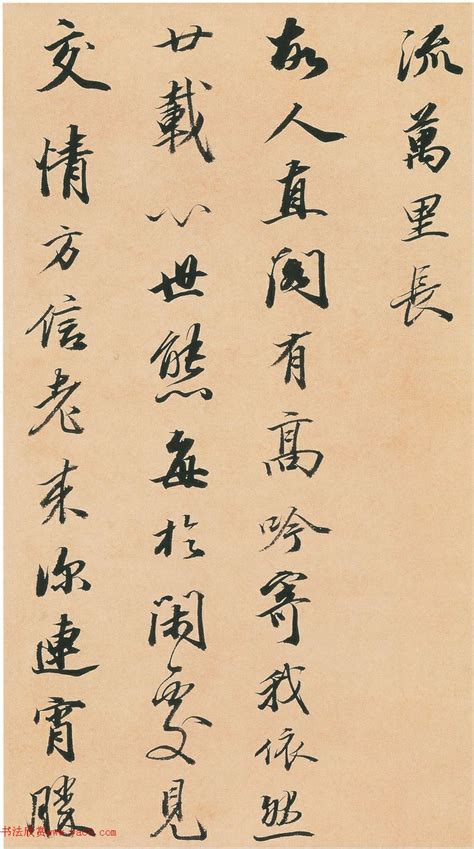 流萬里長
故人直閣有高吟寄我依然
廿載心世態每於閑處見
交情方信老来深連宵勝
书法欣赏www.yac8.com